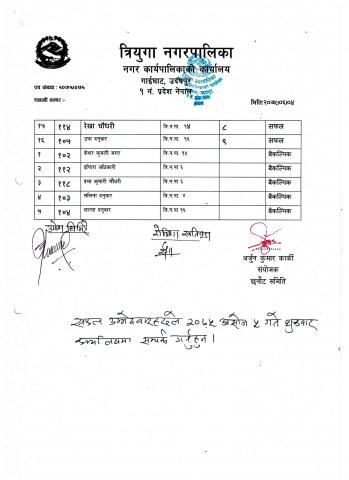 त्रियुगा नगरपालिका
नगर कार्यपालिकाको कार्यालय
गाईघाट, उदयपुर
१ नं. प्रदेश नेपाल
पत्र संख्याः २०७५/०७६
चलानी नम्बरः-
मितिः २०७५/०६/०४
१५ ११४ रेखा चौधरी त्रि.न.पा. १४ ८ सफल
१६ १०५ उषा दनुवार त्रि.न.पा. ९ सफल
१ १०२ केशर कुमारी मगर त्रि.न.पा. बैकल्पिक
२ ११२ इन्दिरा अधिकारी त्रि.न.पा ६ बैकल्पिक
३ ११८ कुमारी चौधरी त्रि.न.पा ६ बैकल्पिक
४ १०३ सलिना दनुवार त्रि.न.पा. ४ बैकल्पिक
५ १०४ शान्ता दनुवार त्रि.न.पा. १६ बैकल्पिक
अर्जुन कुमार कार्की
संयोजक
छनौट समिति
सफल उम्मेदवारहरुले २०७५ असोज ५ गते शुक्रवार
कार्यालयमा सम्पर्क गर्नुहुन।